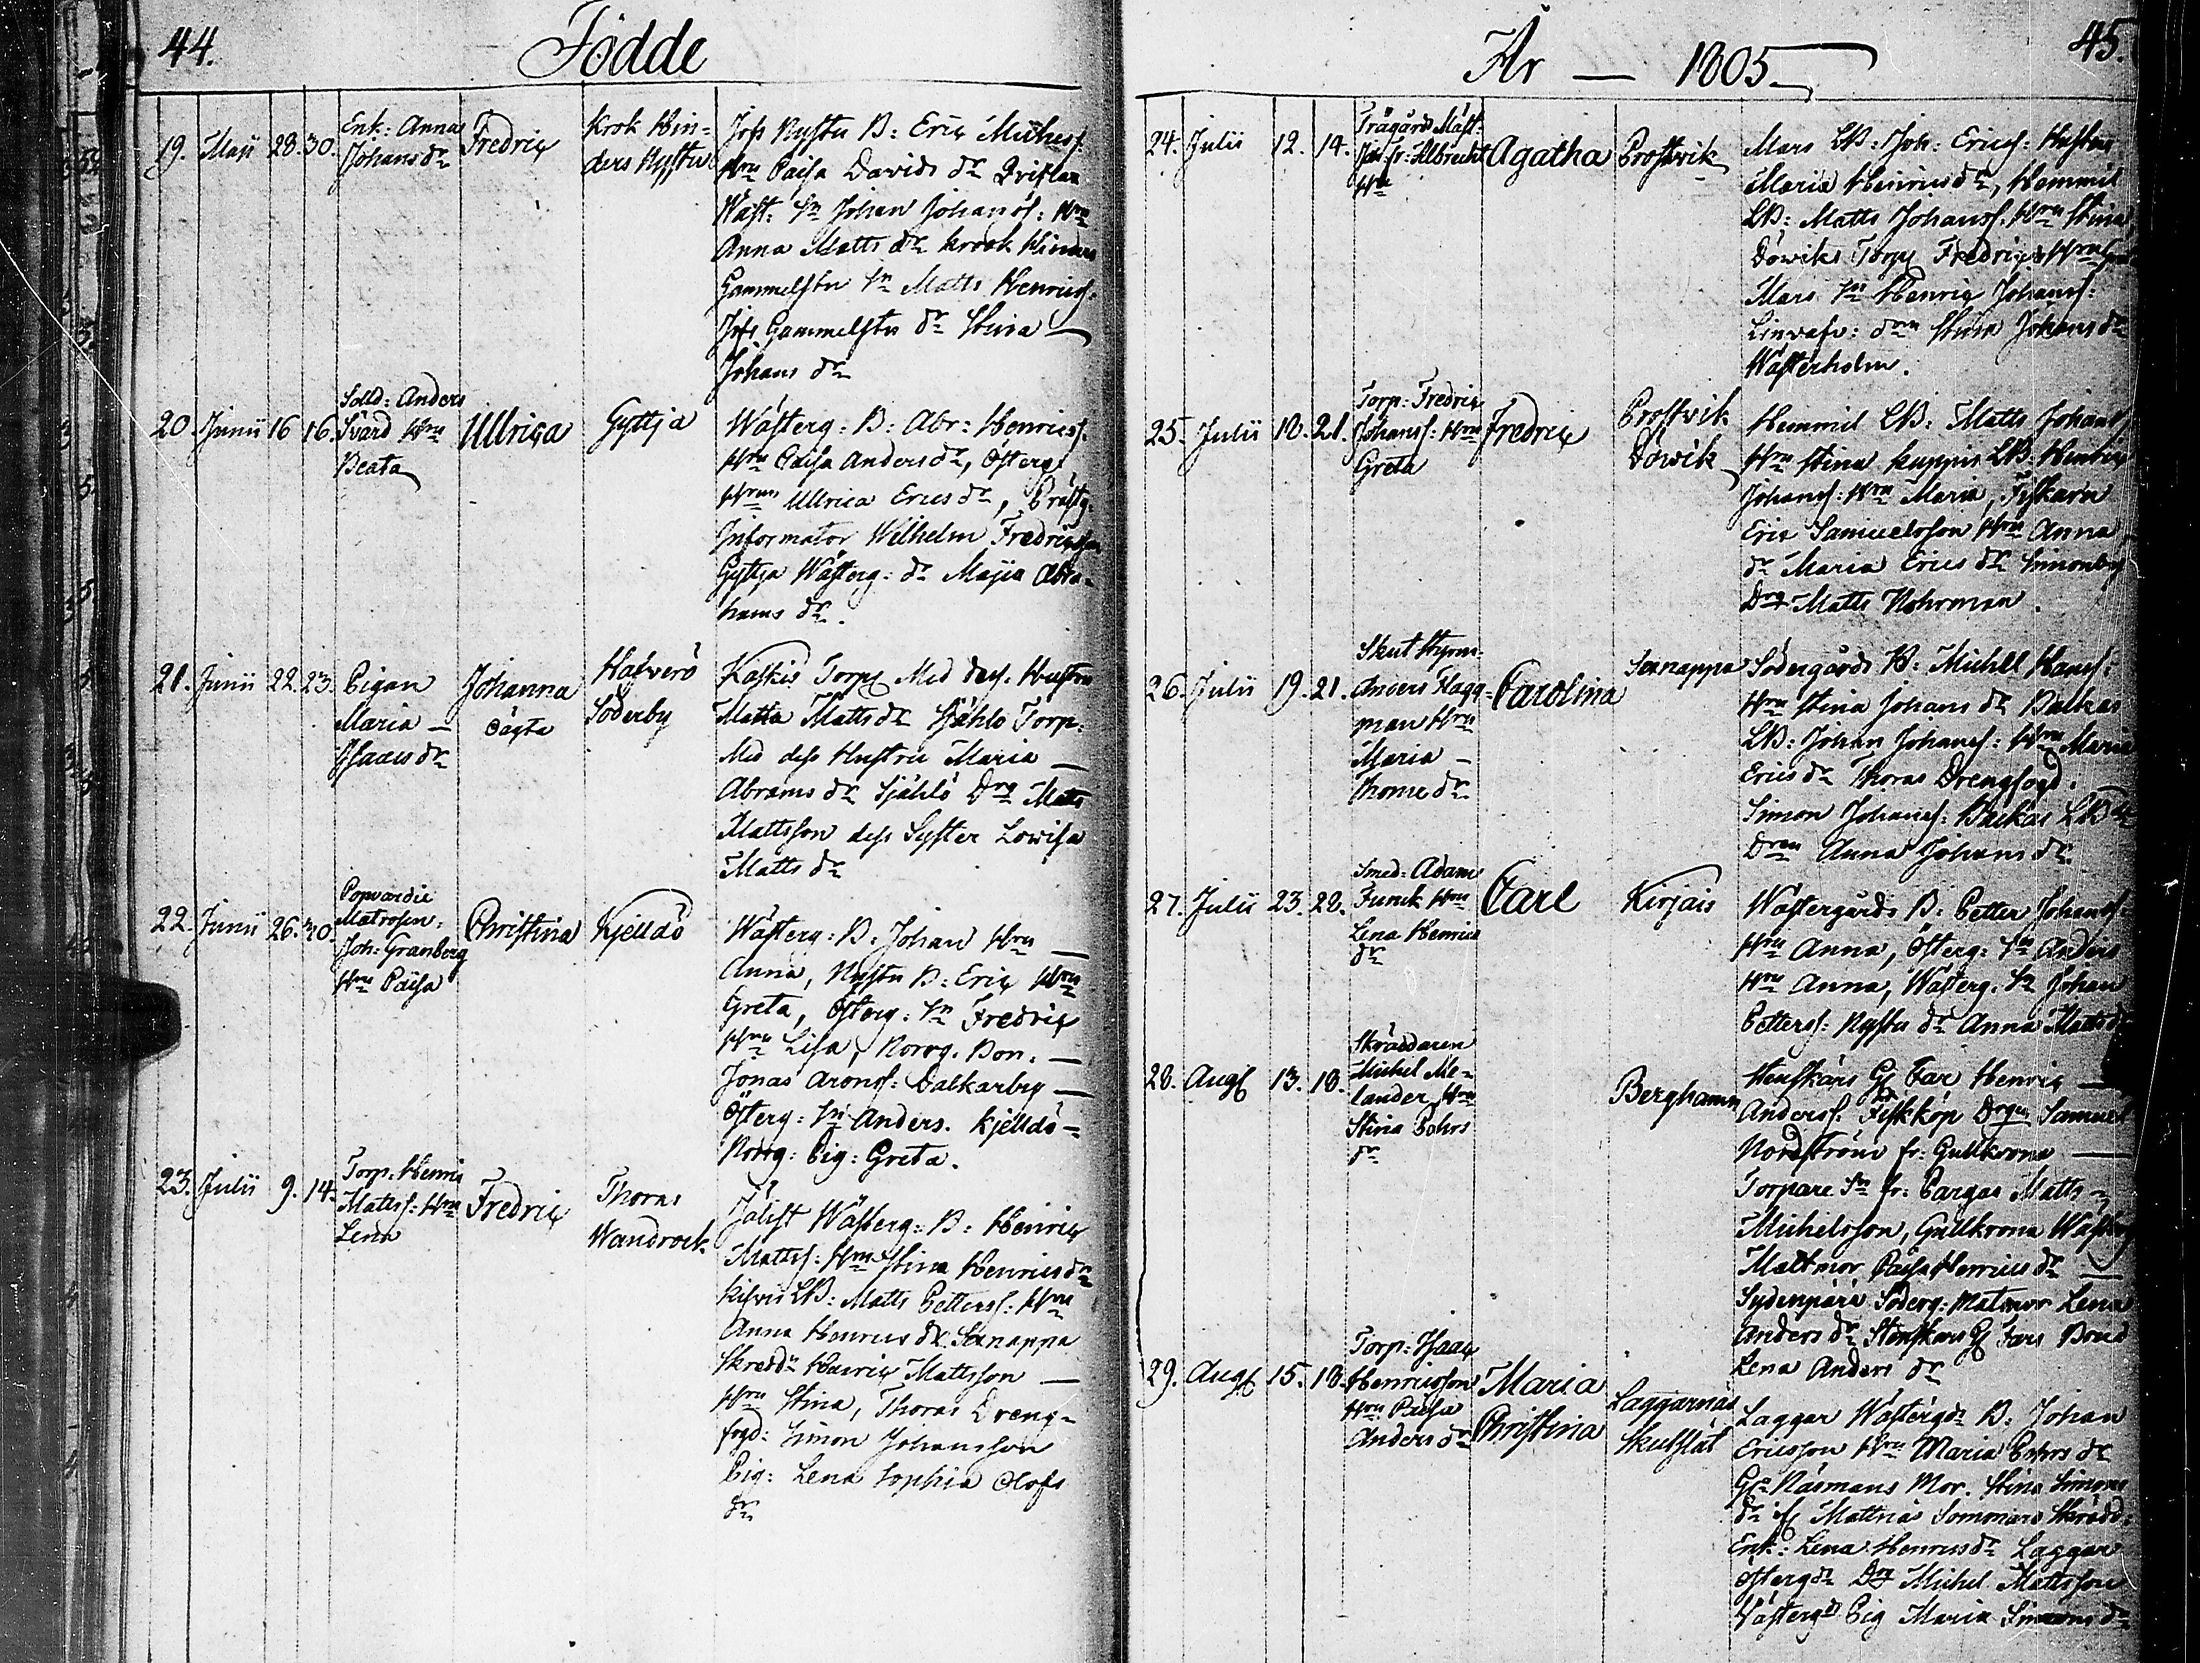 44.
Födde
19. Maji 28. 30.
Enk: Anna
Johans dr
Fredric
Krok Hin=
ders Nystu
Jofs Nystu B: Eric Michels.
Hru Caisa Davids dr
Wäst: Sn Johan Johans: Hru
Anna Matts dr Krook Hinders
Gammelstu Sn Matts Henrics:
Jofs Gammelstu dr Stina —
Johans dr
20. Junii 16 16.
Solld: Anders
Svärd Hru
Beata
Ullrica
Gyttja
Wästerg: B: Abr: Henrics.
Hru Caisa Anders dr, Österg:
Hrun Ullrica Erics dr, Prästg:
Informator Wilhelm Fredricsson
Gyttja Wästerg: dr Majia Abra=
hams dr.
21. Junii 22. 23.
Pigan
Maria —
Isaacs dr
Johanna
oägta
Hafverö
Söderby
Kaskis Torp. Med dess. Hustru
Matts dr Själö Torp:
Med dess Hustru Maria —
Abrams dr Själö Drg Matts
Mattsson dess Syster Lowisa
Matts dr
22. Junii 26. 30.
Matrosen.
Joh: Granberg
Hru Caisa
Christina
Kjelldö
Wästerg: B: Johan Hru —
Anna, Nystu B: Eric Hru
Greta, Österg: Sn Fredric
Hru Lisa, Norrg. Bon. —
Jonas Arons: Dalkarby —
Österg: Sn Anders. Kjelldö —
Norrg: Pig: Greta.
23. Julii 9. 14.
Torp: Henric
Mattss: Hru
Lena
Fredric
Thoras
Wandrock
Jälist Wästerg: B: Henric
Mattss: Hru Stina Henrics dr
LB: Matts Petterss: Hru
Anna Henrics dr Sexnappa
Skredd: Henric Mattsson —
Hru Stina, Thoras Dreng=
fogd: Simon Johansson
Pig: Lena Sophia Olofs
dr
År — 1805
45.
24. Julii 12. 14.
Trägårds Mäst:
Albrecht
Hru
Agatha
Prostvik
Mars LB: Joh: Erics: Hustru
Maria Henrics dr, Hemmil
LB: Matts Johanss. Hru Stina
Döwiks Torp Fredrics Hru
Mars Sn Henric Johanss:
Linvafv: Stina Johans dr
Wästerholm.
25. Julii 18. 21.
Torp: Fredric
Johanss: Hru
Greta
Fredric
Prostvik
Döwik
Hemmil LB: Matts Johans
Hru Stina Kuppis LB: Henric
Johanss: Hru Maria, Fiskarn
Eric Samuelsson Hru Anna
dr Maria Erics dr Simonby
Drg Matts Nohrman.
26. Julii 19. 21.
Skut Styrm.
Anders Flagg=
man Hru
Maria —
Thome dr
Carolina
Sexnappa
Södergårds B: Michel
Hru Stina Johans dr Backas
LB: Johan Johanss: Hru Maria
Erics dr Thoras Drengfogd.
Simon Johanss: Backas LB
Anna Johans dr
27. Julii 23. 28.
Smed: Adam
Funck Hru
Lena Henrics
dr
Carl
Kirjais
Wästergårds B: Petter Johanss
Hru Anna, Österg: Sn Anders
Hru Anna, Wästerg. Sn Johan
Petterss: Nystu dr Anna Matts dr
28. Aug. 13. 18.
Skräddaren
Michel Me=
lander Hru
Stina Pehrs
dr
Berghamn
Stenskärs Gl Far Henric —
Anderss. Fiskköp Drgn Samuel
Nordström fr: Gullkrona —
Torpare Sn fr: Pargas Matts —
Michelsson, Gullkrona Wästerg
Matmor Caisa Henrics dr —
Sydenperä Söderg: Matmor Lena
Anders dr Stenskärs Gl Fars
Lena Anders dr
29. Aug. 15. 18.
Torp: Isaac
Henricsson
Hru Caisa
Anders dr
Maria
Christina
Laggarnäs
Laggar Wästergds B: Johan
Ericsson Hru Maria Pehrs dr
Gl Näsmans Mor. Stina Simons
dr Matthias Sommars Skrädd:
Enk: Lena Henrics dr Laggar
Östergds Drg Michel Mattsson
Wästergds Pig Maria Simons dr